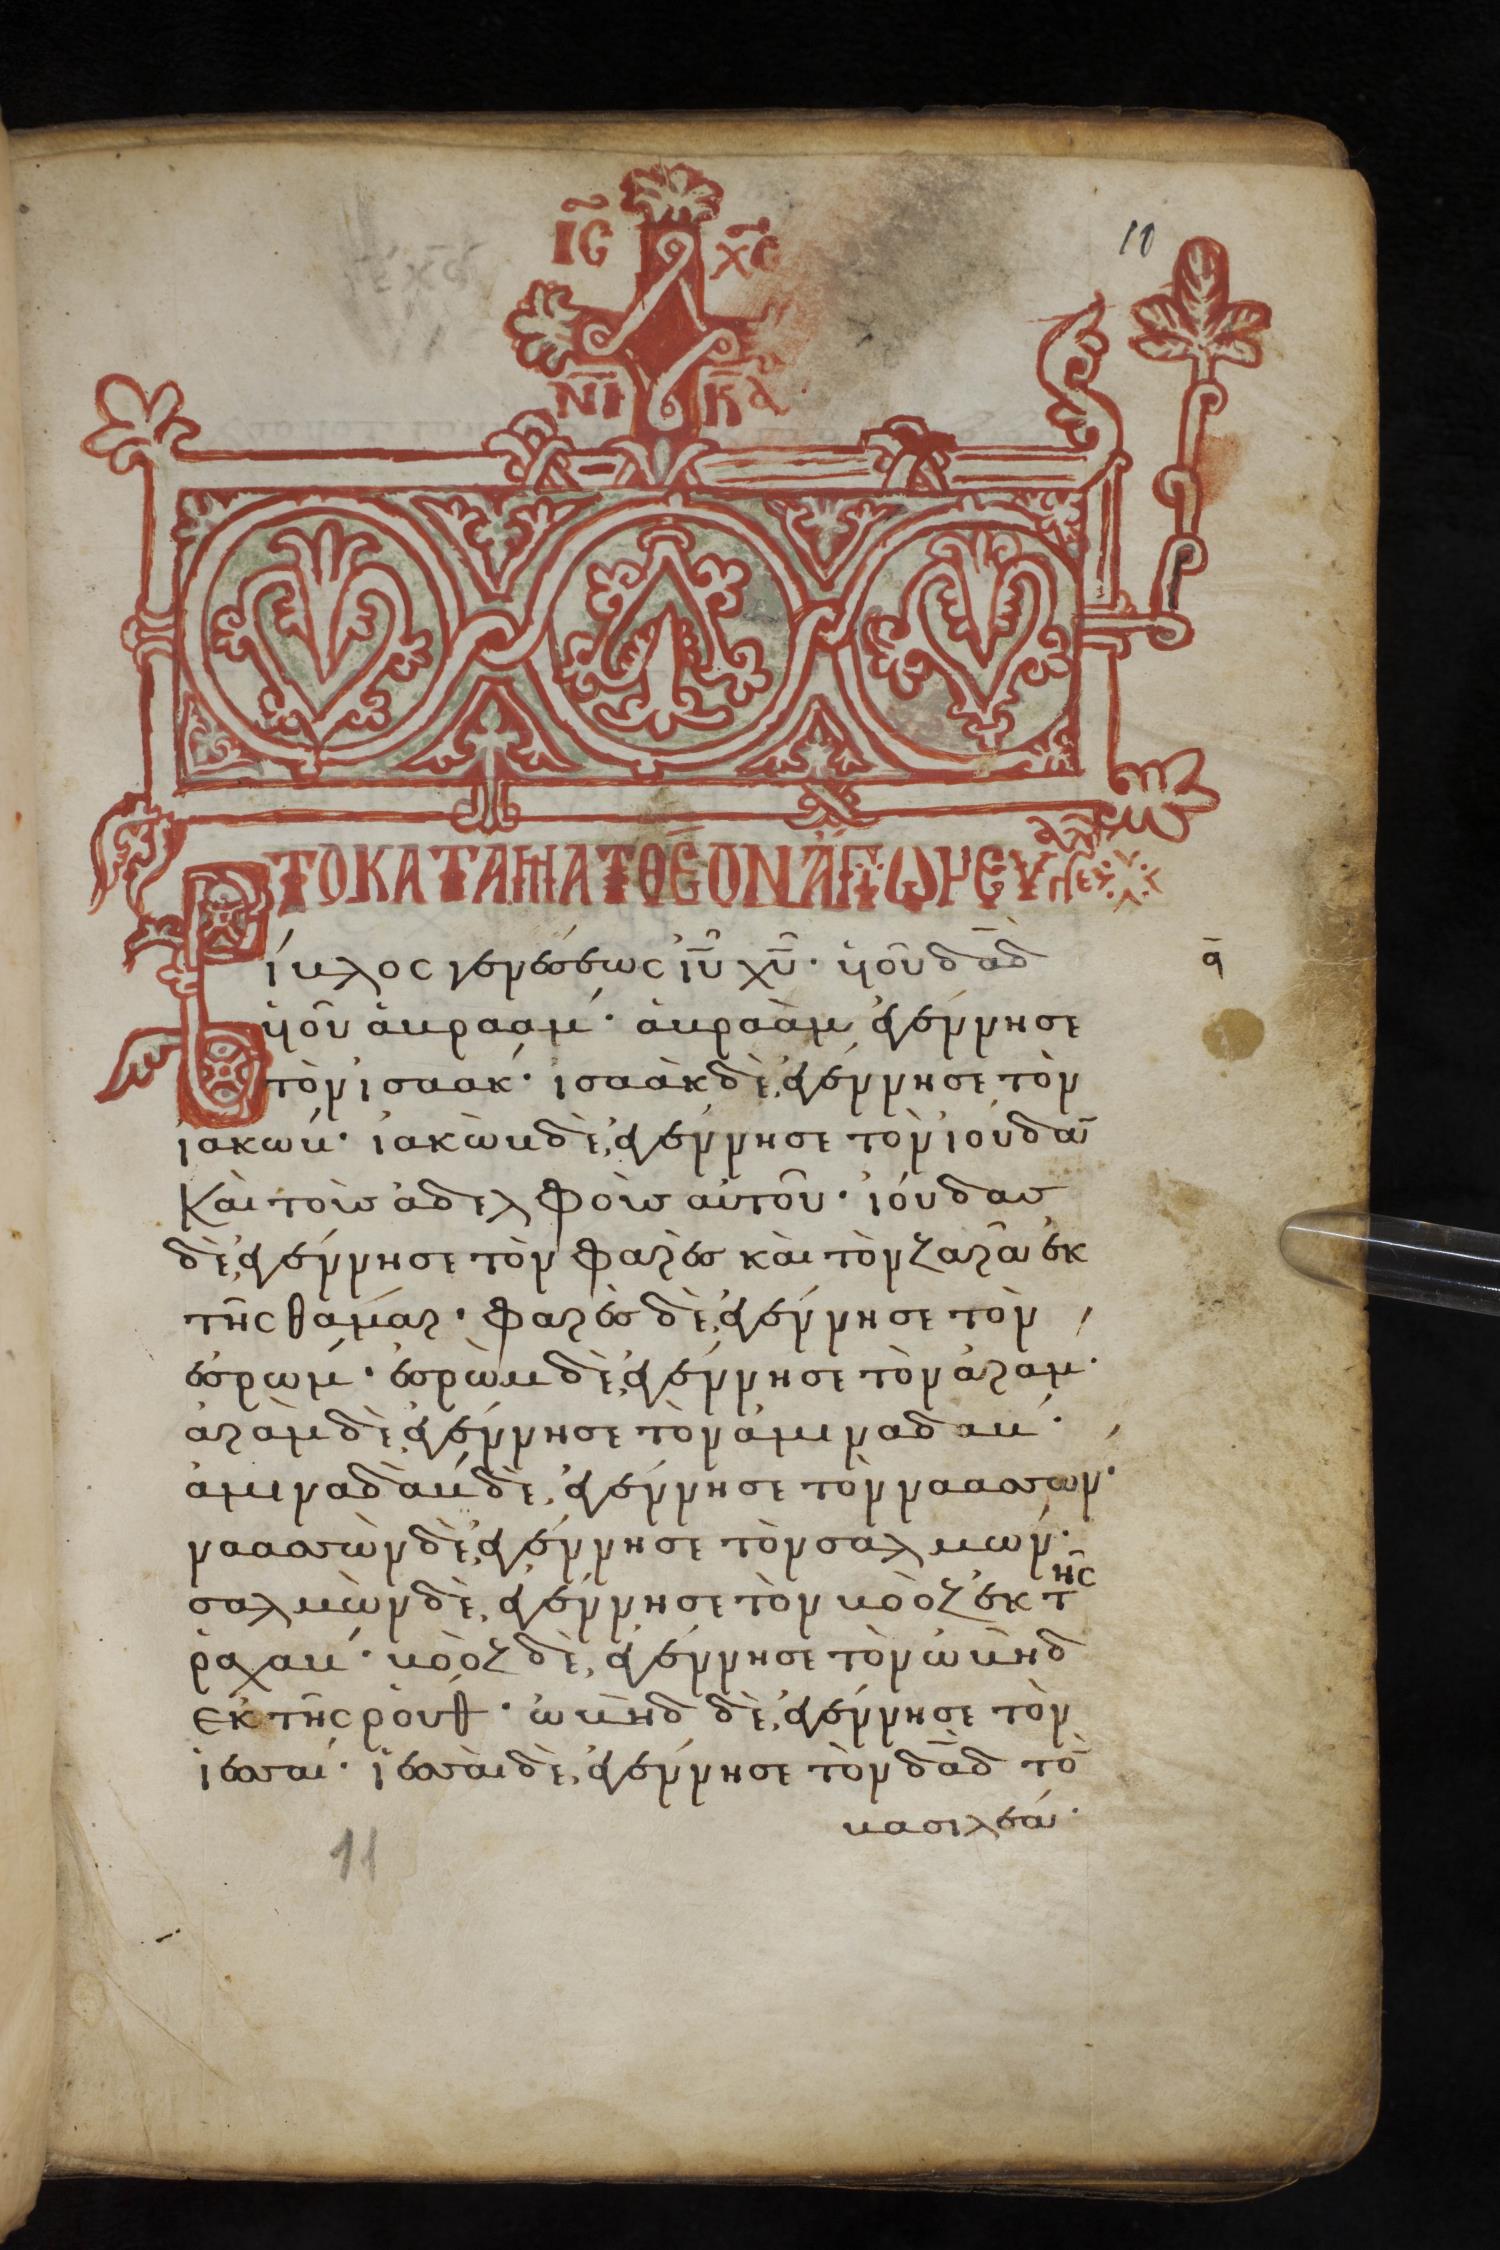 ΙϹ ΧϹ
10
ΝΙ ΚΑ
ΤΟ ΚΑΤΑ ΜΑΤΘΕΟΝ ἍΓΙΟΝ ΕΥΑΓΓΕΛ
Βίβλος γενέσεως ἰῡ χῡ· ὑοῦ δᾱδ
ᾱ
ὑοῦ ἀβραάμ· ἀβραὰμ ἐγέννησε
τὸν ἰσαάκ· ἰσαὰκ δὲ ἐγέννησε τὸν
ἰακώβ· ἰακὼβ δὲ ἐγέννησε τὸν ἰούδαν
Καὶ τοὺς ἀδελφοὺς αὐτοῦ· ἰούδας
δὲ ἐγέννησε τὸν φαρὲς καὶ τὸν ζαρᾶ ἐκ
τῆς θάμαρ· φαρὲς δὲ ἐγέννησε τὸν
ἐσρώμ· ἐσρὼμ δὲ ἐγέννησε τὸν ἀράμ·
ἀρὰμ δὲ ἐγέννησε τὸν ἀμιναδάβ·
ἀμιναδὰβ δὲ ἐγέννησε τὸν ναασσών·
ναασσὼν δὲ ἐγέννησε τὸν σαλμών·
σαλμὼν δὲ ἐγέννησε τὸν βοὸζ ἐκ τῆς
ῥαχάβ· βοὸζ δὲ ἐγέννησε τὸν ὠβὴδ
Ἐκ τῆς ῥούθ· ὠβὴδ δὲ ἐγέννησε τὸν
ἰεσσαί· ἰεσσαὶ δὲ ἐγέννησε τὸν δᾱδ τὸ
βασιλέα·
11